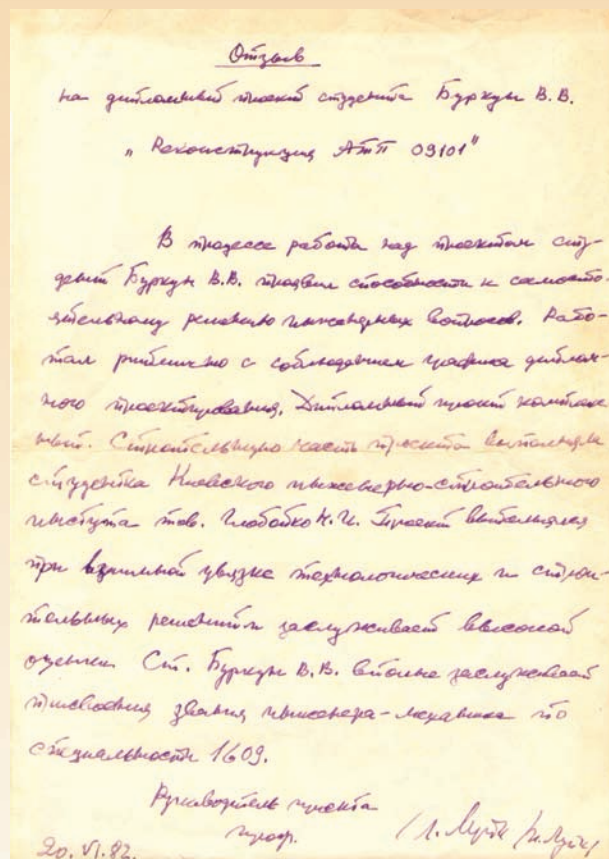 Отзыв
на дипломный проект студента Буркун В.В.
„Реконструкция АТП 09101"
В процессе работы над проектом сту-
дент Буркун В.В. проявил способности к самосто-
ятельному решению инженерных вопросов. Рабо-
тал ритмично с соблюдением графика диплом-
ного проектирования. Дипломный проект комплекс
ный. Строительную часть проекта выполняла
студентка Киевского инженерно-строительного
института тов. Глобойко Н.И. Проект выполнялся
при взаимной увязке технологических и строи-
тельных решений и заслуживает высокой
оценки. Ст. Буркун В.В. вполне заслуживает
присвоения звания инженера-механика по
специальности 1609.
Руководитель проекта
проф.
20.VI.82.